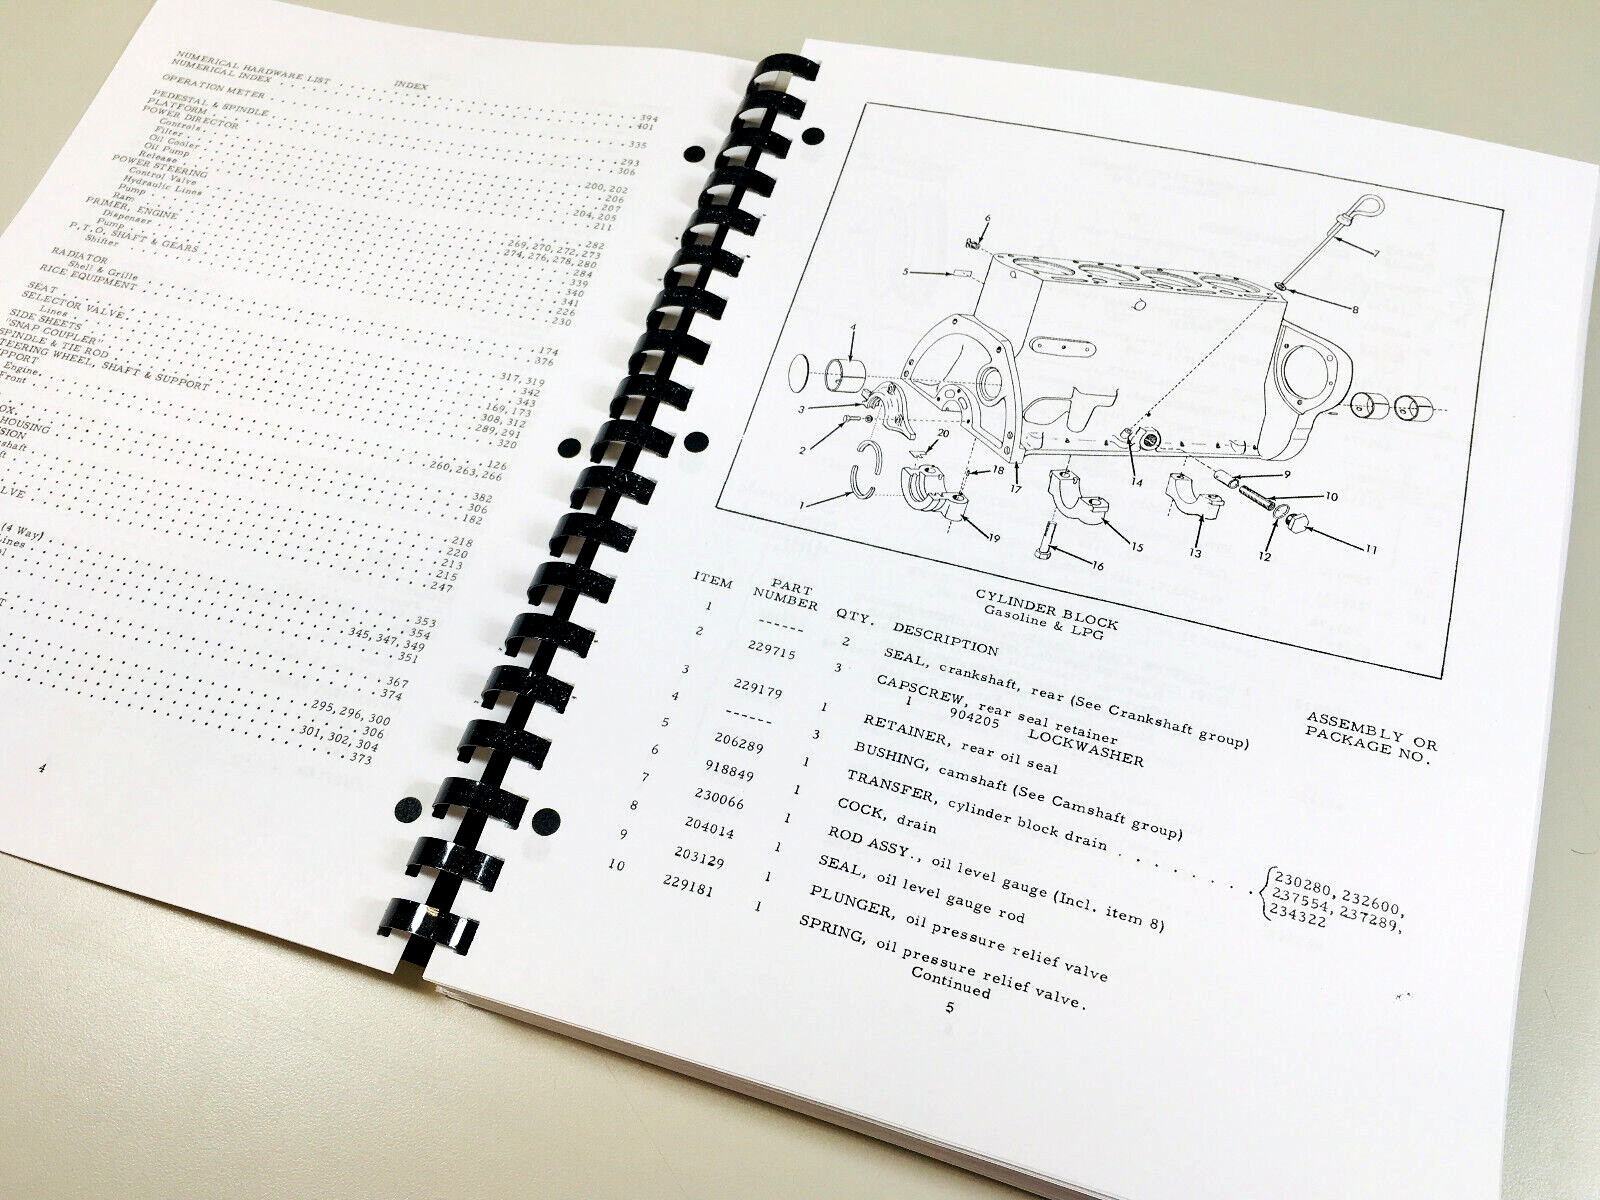 INDEX
NUMERICAL HARDWARE LIST 394
NUMERICAL INDEX 401
OPERATION METER 335
PEDESTAL & SPINDLE 293
PLATFORM 306
POWER DIRECTOR
Controls 200, 202
Filter 206
Oil Cooler 207
Oil Pump 204, 205
Release 211
POWER STEERING
Control Valve 282
Hydraulic Lines 269, 270, 272, 273
Pump 274, 276, 278, 280
Ram 284
PRIMER, ENGINE 339
Dispenser 340
Pump 341
P.T.O. SHAFT & GEARS 226
Shifter 230
RADIATOR 174
Shell & Grille 376
RICE EQUIPMENT
SEAT 317, 319
SELECTOR VALVE 342
Lines 343
SIDE SHEETS 169, 173
"SNAP COUPLER" 308, 312
SPINDLE & TIE ROD 289, 291
STEERING WHEEL, SHAFT & SUPPORT 320
Engine 126
Front 260, 263, 266
382
HOUSING 306
182
218
220
213
(4 Way) 215
Lines 247
353
354
345, 347, 349
351
367
374
295, 296, 300
306
301, 302, 304
373
4
6
5
4
3
2
1
20
18
17
19
16
15
14
13
12
11
10
9
8
7
CYLINDER BLOCK
Gasoline & LPG
ITEM PART NUMBER QTY. DESCRIPTION ASSEMBLY OR PACKAGE NO.
1 ------ 2 SEAL, crankshaft, rear (See Crankshaft group)
2 229715 3 CAPSCREW, rear seal retainer
1 904205 LOCKWASHER
3 229179 1 RETAINER, rear oil seal
4 ------ 3 BUSHING, camshaft (See Camshaft group)
5 206289 1 TRANSFER, cylinder block drain . . . . . . . . . {230280, 232600,
237554, 237289,
234322
6 918849 1 COCK, drain
7 230066 1 ROD ASSY., oil level gauge (Incl. item 8)
8 204014 1 SEAL, oil level gauge rod
9 203129 1 PLUNGER, oil pressure relief valve
10 229181 1 SPRING, oil pressure relief valve.
Continued
5